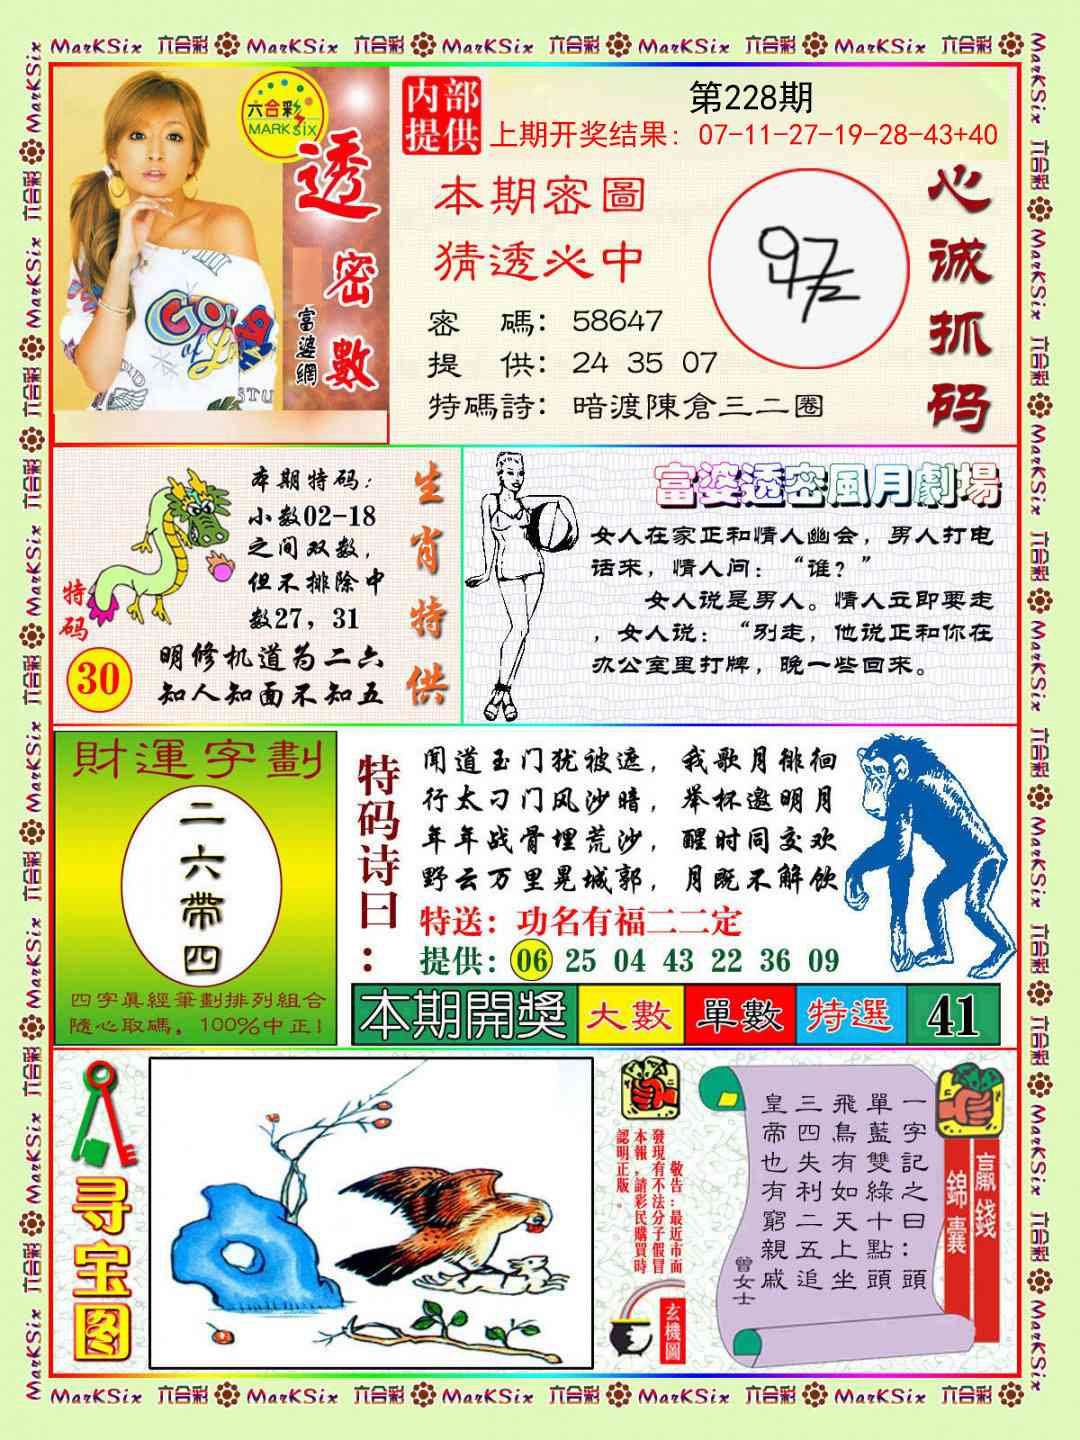 MarKSix 六合彩 MarKSix 六合彩 MarKSix 六合彩 MarKSix 六合彩 MarKSix 六合彩
六合彩
MARK SIX
透密數
富婆網
内部
提供
第228期
上期开奖结果：07-11-27-19-28-43+40
本期密圖
猜透必中
密 碼：58647
提 供：24 35 07
特碼詩：暗渡陳倉三二圈
心诚抓码
特码
30
本期特码：
小数02-18
之间双数，
但不排除中
数27，31
明修机道为二六
知人知面不知五
生肖特供
富婆透密風月劇場
女人在家正和情人幽会，男人打电
话来，情人问：“谁？”
女人说是男人。情人立即要走
，女人说：“别走，他说正和你在
办公室里打牌，晚一些回来。
財運字劃
二六帶四
四字眞經筆劃排列組合
隨心取碼，100%中正！
特码诗曰：
闻道玉门犹被遮，我歌月徘徊
行太刁门风沙暗，举杯邀明月
年年战骨埋荒沙，醒时同交欢
野云万里晃城郭，月既不解饮
特送：功名有福二二定
提供：06 25 04 43 22 36 09
本期開獎 大數 單數 特選 41
寻宝图
敬告：最近市面
發現有不法分子假冒
本報，請彩民購買時
認明正版。
玄機圖
贏錢
錦囊
一字記之曰：頭
單藍雙綠十點頭
飛鳥有如天上坐
三四失利二五追
皇帝也有窮親戚
曾女士
MarKSix 六合彩 MarKSix 六合彩 MarKSix 六合彩 MarKSix 六合彩 MarKSix 六合彩